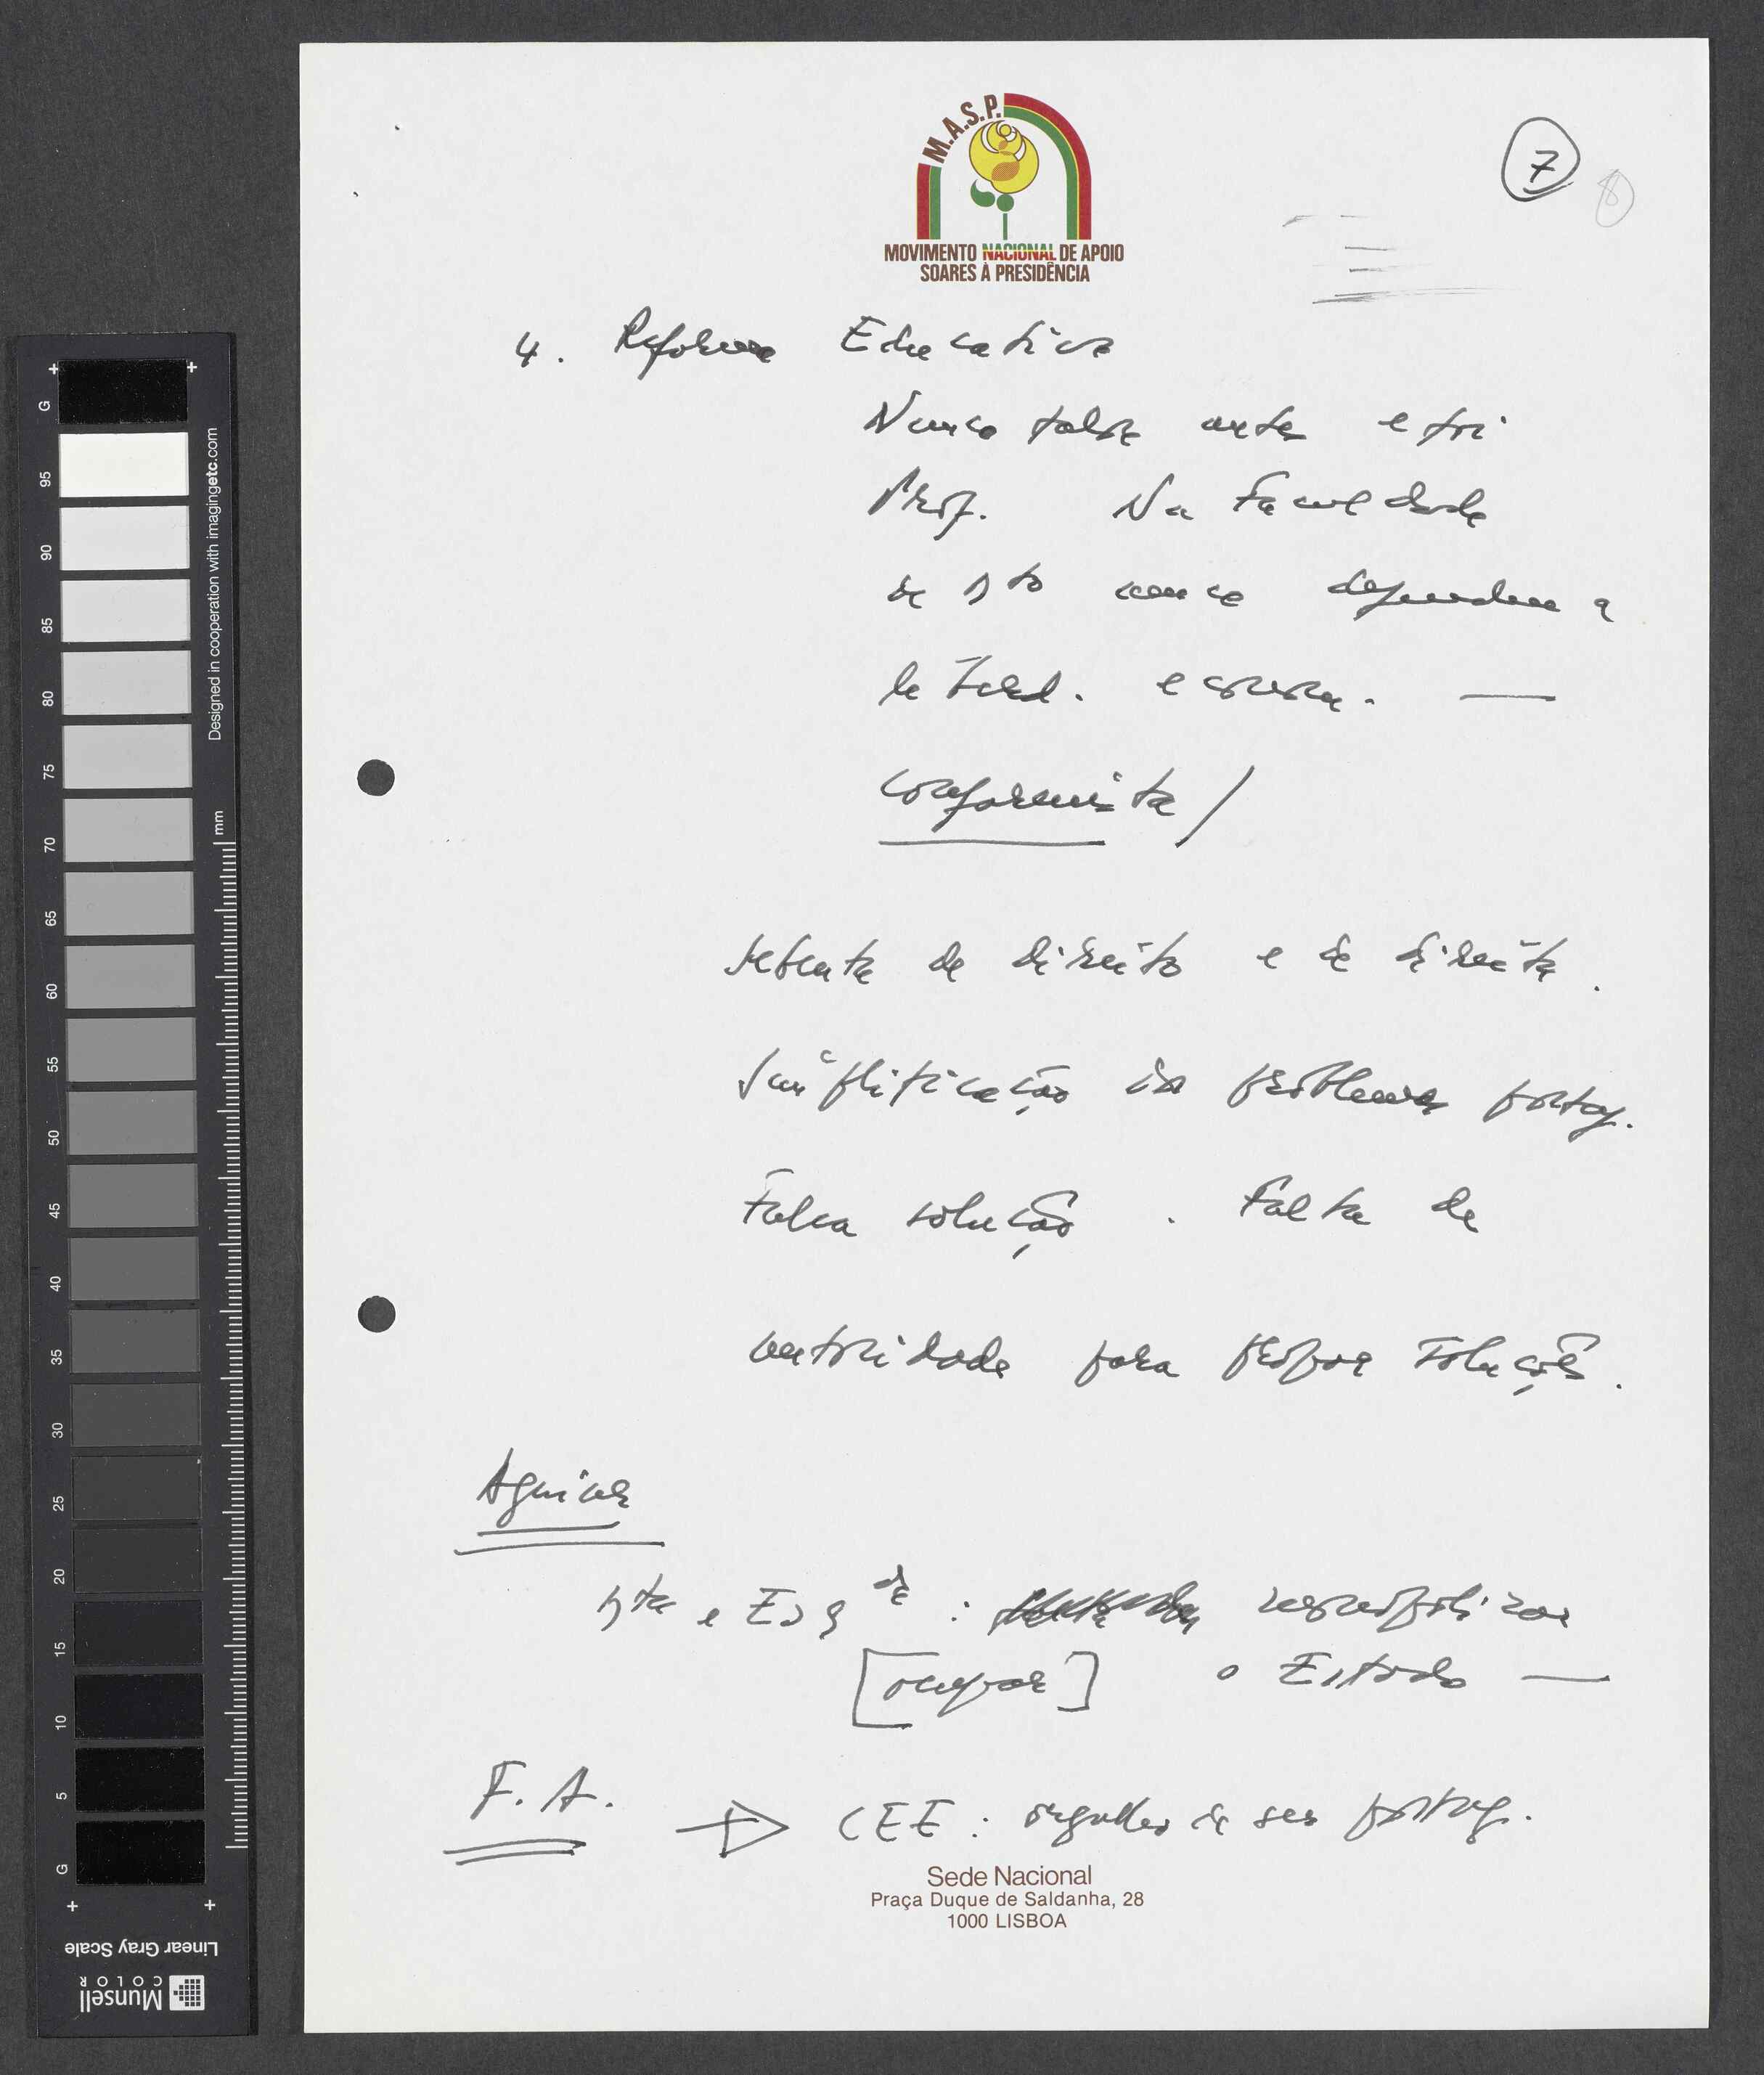 M.A.S.P.
MOVIMENTO NACIONAL DE APOIO
SOARES À PRESIDÊNCIA
7
8
4. Reforma Educativa
Nunca falou antes e foi
Prof. Na Faculdade
de Dto nunca defendeu a
liberd. e
conformista /
sebenta de direito e de direita.
Simplificação dos problemas portug.
Falsa solução. Falta de
autoridade para propor soluções.
Aguiar
Dta e Esqda :
[ocupar] o Estado —
F.A. → CEE : orgulho de ser portug.
Sede Nacional
Praça Duque de Saldanha, 28
1000 LISBOA
Designed in cooperation with imagingetc.com
mm
G
95
90
85
80
75
70
65
60
55
50
45
40
35
30
25
20
15
10
5
G
Linear Gray Scale
Munsell
COLOR